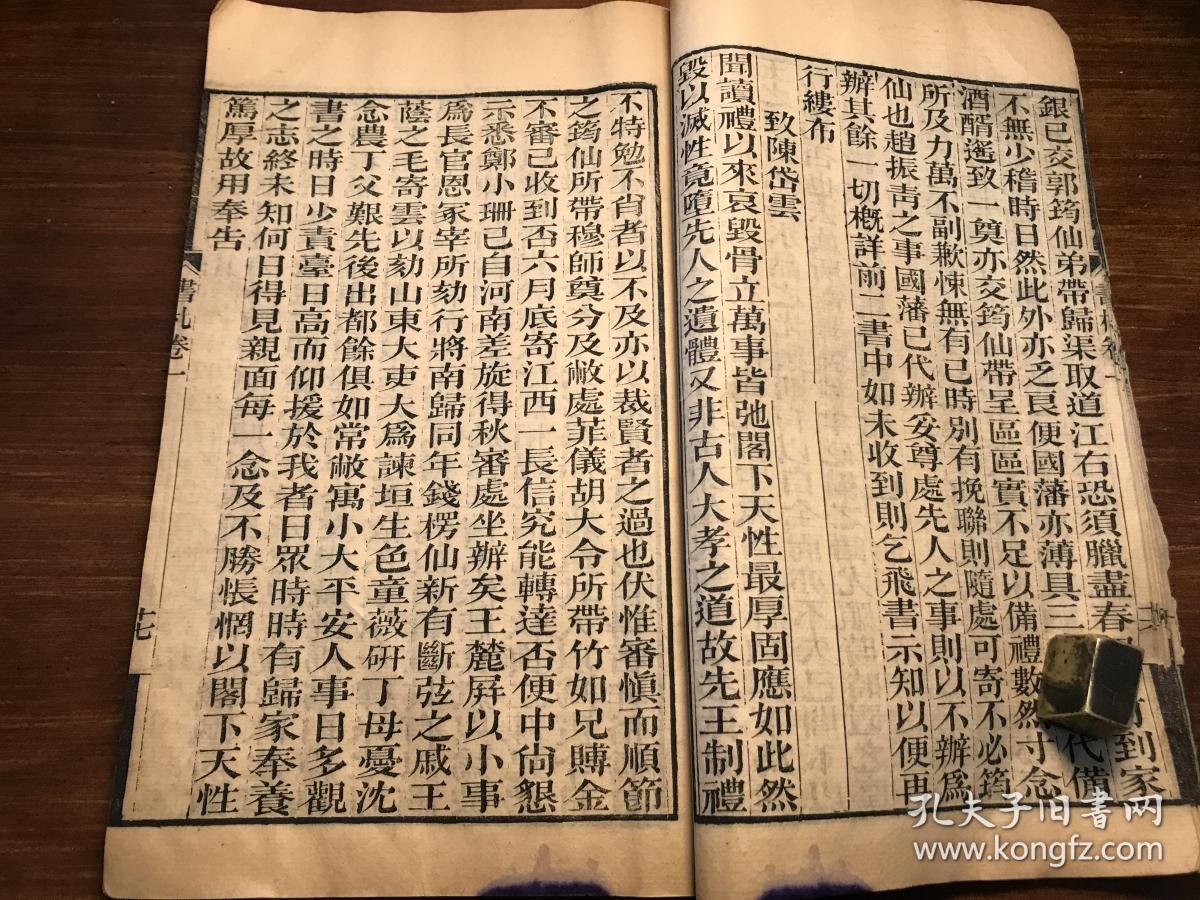 銀已交郭筠仙弟帶歸渠取道江右恐須臘盡春到家
不無少稽時日然此外亦乏良便國藩亦薄具三代備
酒醑遙致一奠亦交筠仙帶呈區區實不足以備禮數然寸念
所及力萬不副歉悚無有已時別有挽聯則隨處可寄不必筠
仙也趙振青之事國藩已代辦妥尊處先人之事則以不辦為
辦其餘一切概詳前二書中如未收到則乞飛書示知以便再
行縷布
致陳岱雲
聞讀禮以來哀毀骨立萬事皆弛閣下天性最厚固應如此然
毀以滅性竟墮先人之遺體又非古人大孝之道故先王制禮
不特勉不肖者以不及亦以裁賢者之過也伏惟審愼而順節
之筠仙所帶穆師奠分及敝處菲儀胡大令所帶竹如兄賻金
不審已收到否六月底寄江西一長信究能轉達否便中尙懇
示悉鄭小珊已自河南差旋得秋審處坐辦矣王麓屏以小事
爲長官恩冢宰所劾行將南歸同年錢楞仙新有斷弦之戚王
蔭之毛寄雲以劾山東大吏大爲諫垣生色童薇硏丁母憂沈
念農丁父艱先後出都餘俱如常敝寓小大平安人事日多觀
書之時日少責臺日高而仰援於我者日眾時時有歸家奉養
之志終未知何日得見親面每一念及不勝悵惘以閣下天性
篤厚故用奉告
書札卷一
七
孔夫子旧书网
www.kongfz.com